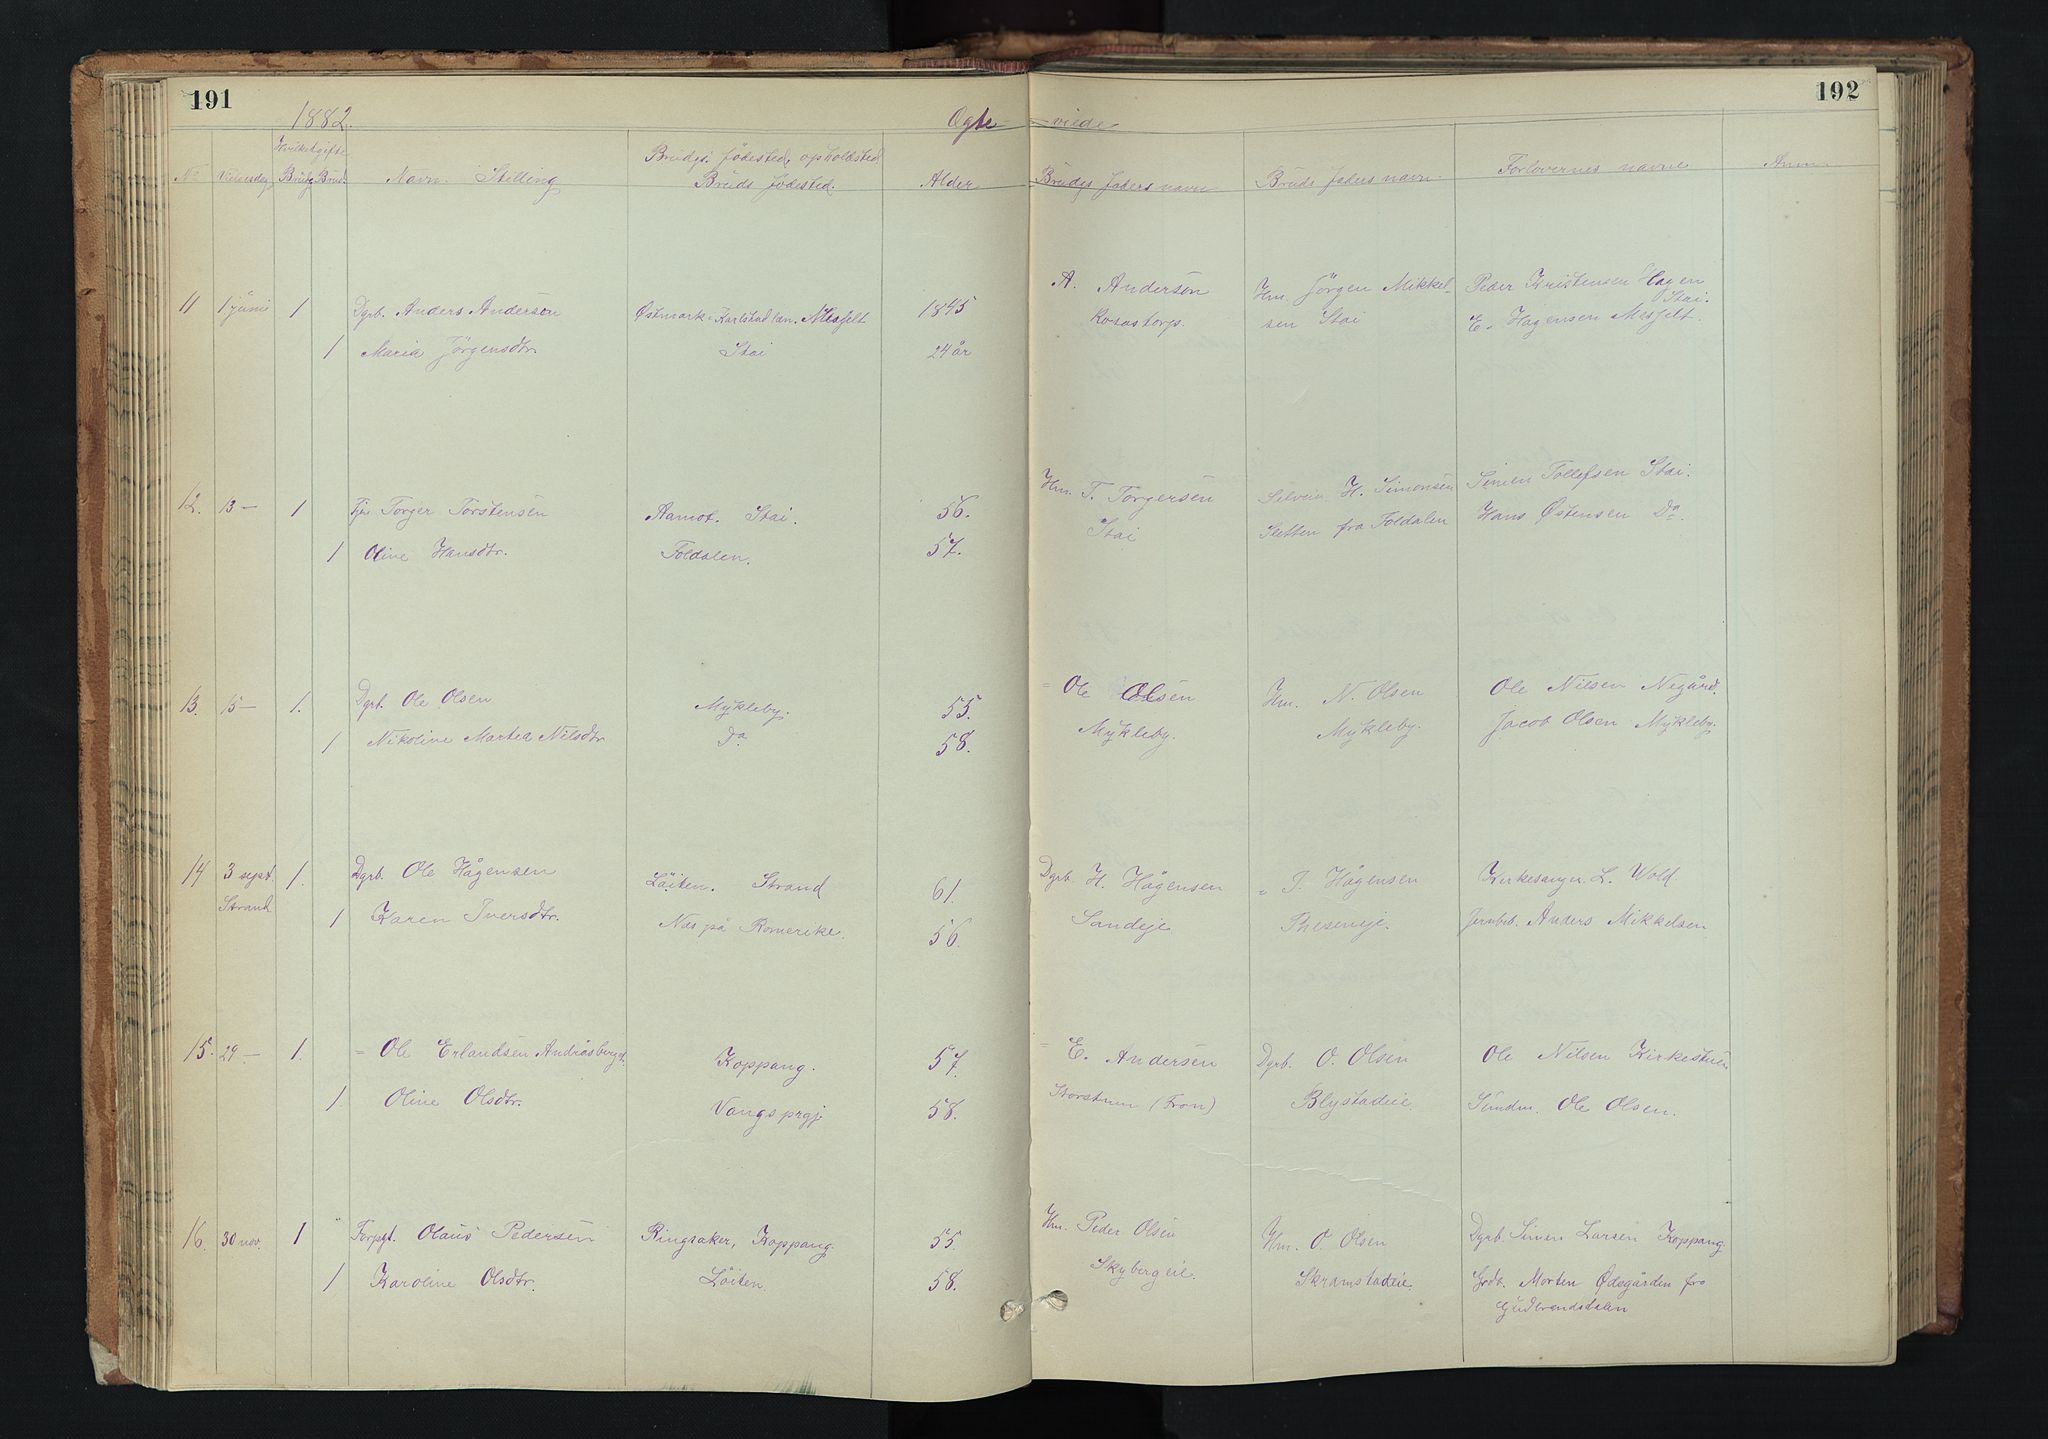 191
192
1882.
Ogte-viede
Hvilket gifte
No Vielsesdag Brudg Brud. Navn. Stilling Brudgs. fødested, opholdsted Bruds fødested. Alder Brudgs faders navn Bruds faders navn. Forlovernes navne Anm.
11 1 juni 1 Dgrb. Anders Anderson Østmark i Karlstad län. Messelt 1845 A. Anderson Rosastorp. Hm. Jörgen Mikkelsen Stai Peder Kristensen Hagen Stai. E. Hagensen Messelt.
1 Maria Jörgensdtr. Stai 24 år
12. 13 — 1 Tj. Torger Torstensen Aamot. Stai. 56. Hm. T. Torgersen Stai H. Simonsen Sletten fra Foldalen Simen Tollefsen Stai. Hans Østensen Do.
1 Oline Hansdtr. Foldalen. 57.
13. 15 — 1. Dgrb. Ole Olsen Mykleby. 55. = Ole Olsen Mykleby. Hm. N. Olsen Mykleby. Ole Nilsen Negård. Jacob Olsen Mykleby.
1 Nikoline Martea Nilsdtr Do 58.
14 3 sept. Strand 1. Dgrb. Ole Hågensen Löiten. Strand 61. Dgrb. H. Hågensen Sandeje " I. Hågensen Theseneje. Kirkesanger L. Wold. Jernbeb. Anders Mikkelsen
1 Karen Iversdtr. Nes på Romerike. 56.
15. 29 — 1. = Ole Erlandsen Andråsbergt. Koppang. 57. = E. Andersen Storstum (Fron) Dgrb. O. Olsen Blystadeie Ole Nilsen Kirkestuen Ole Olsen.
1. Oline Olsdtr. Vangs prgj. 58.
16. 30 nov. 1 Forpgt. Olaus Pedersen Ringsaker, Koppang. 55. Hm. Peder Olsen Skybergeie. Hm. O. Olsen Skramstadeie. Dgrb. Simen Larsen Koppang. Grdb. Morten Ødegården fra Gudbrandsdalen
1 Karoline Olsdtr. Löiten. 58.